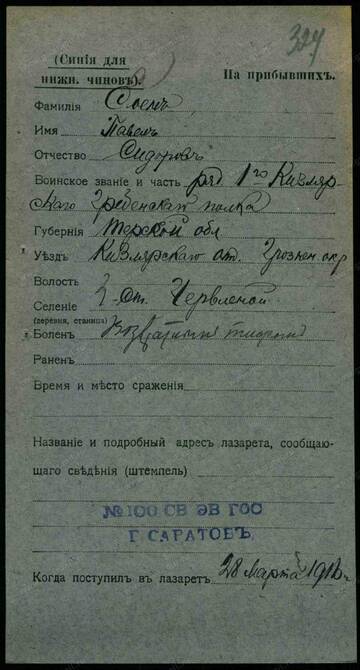 324
(Синія для
нижн. чиновъ).
На прибывшихъ.
Фамилія
Имя Павелъ
Отчество Сидоровъ
Воинское званіе и часть ряд 1го Кизляр-
скаго Гребенскаго полка
Губернія Терской обл
Уѣздъ Кизлярскаго от. Грознен. окр
Волость
Селеніе Ст. Червленой
(деревня, станица)
Боленъ Возвратный тифъ
Раненъ
Время и мѣсто сраженія
Названіе и подробный адресъ лазарета, сообщаю-
щаго свѣдѣнія (штемпель)
№100 СВ ЭВ ГОС
Г. САРАТОВЪ.
Когда поступилъ въ лазаретъ 28 Марта